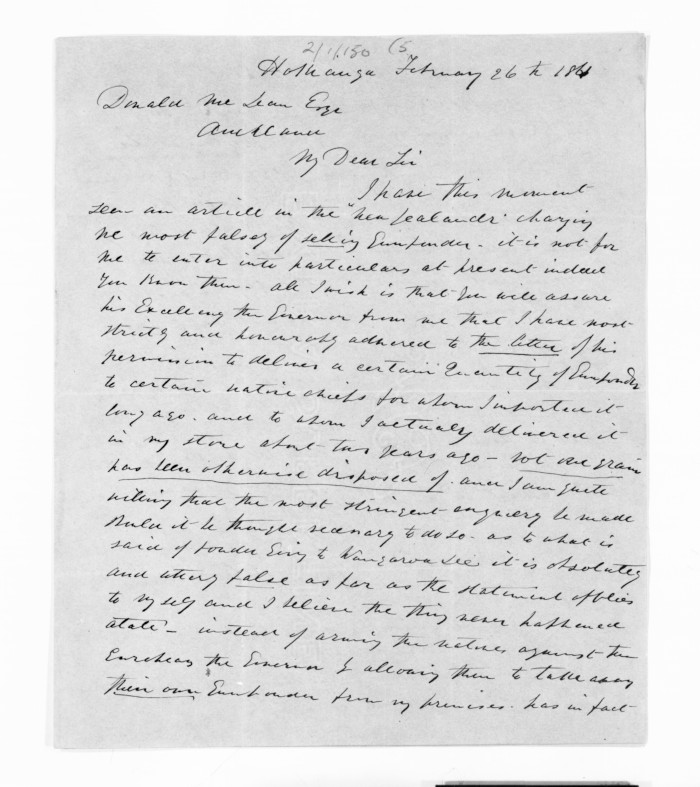 2/1/150 (5
Hokianga February 26th 1861
Donald McLean Esqr
Auckland
My Dear Sir
I have this moment
seen an article in the "New Zealander" charging
me most falsely of selling Gunpowder - it is not for
me to enter into particulars at present indeed
you know them - all I wish is that you will assure
his Excellency the Governor from me that I have most
strictly and honourably adhered to the letter of his
permission to deliver a certain Quantity of Gunpowder
to certain native chiefs for whom I imported it
long ago - and to whom I actually delivered it
in my store about two years ago - not one grain
has been otherwise disposed of - and I am quite
willing that the most stringent enquiry be made
should it be thought necessary to do so - as to what is
said of powder going to Wangaroa &c it is absolutely
and utterly false as far as the statement applies
to myself and I believe the thing never happened
at all - instead of arming the natives against the
Europeans the Governor by allowing them to take away
their own Gunpowder from my premises - has in fact